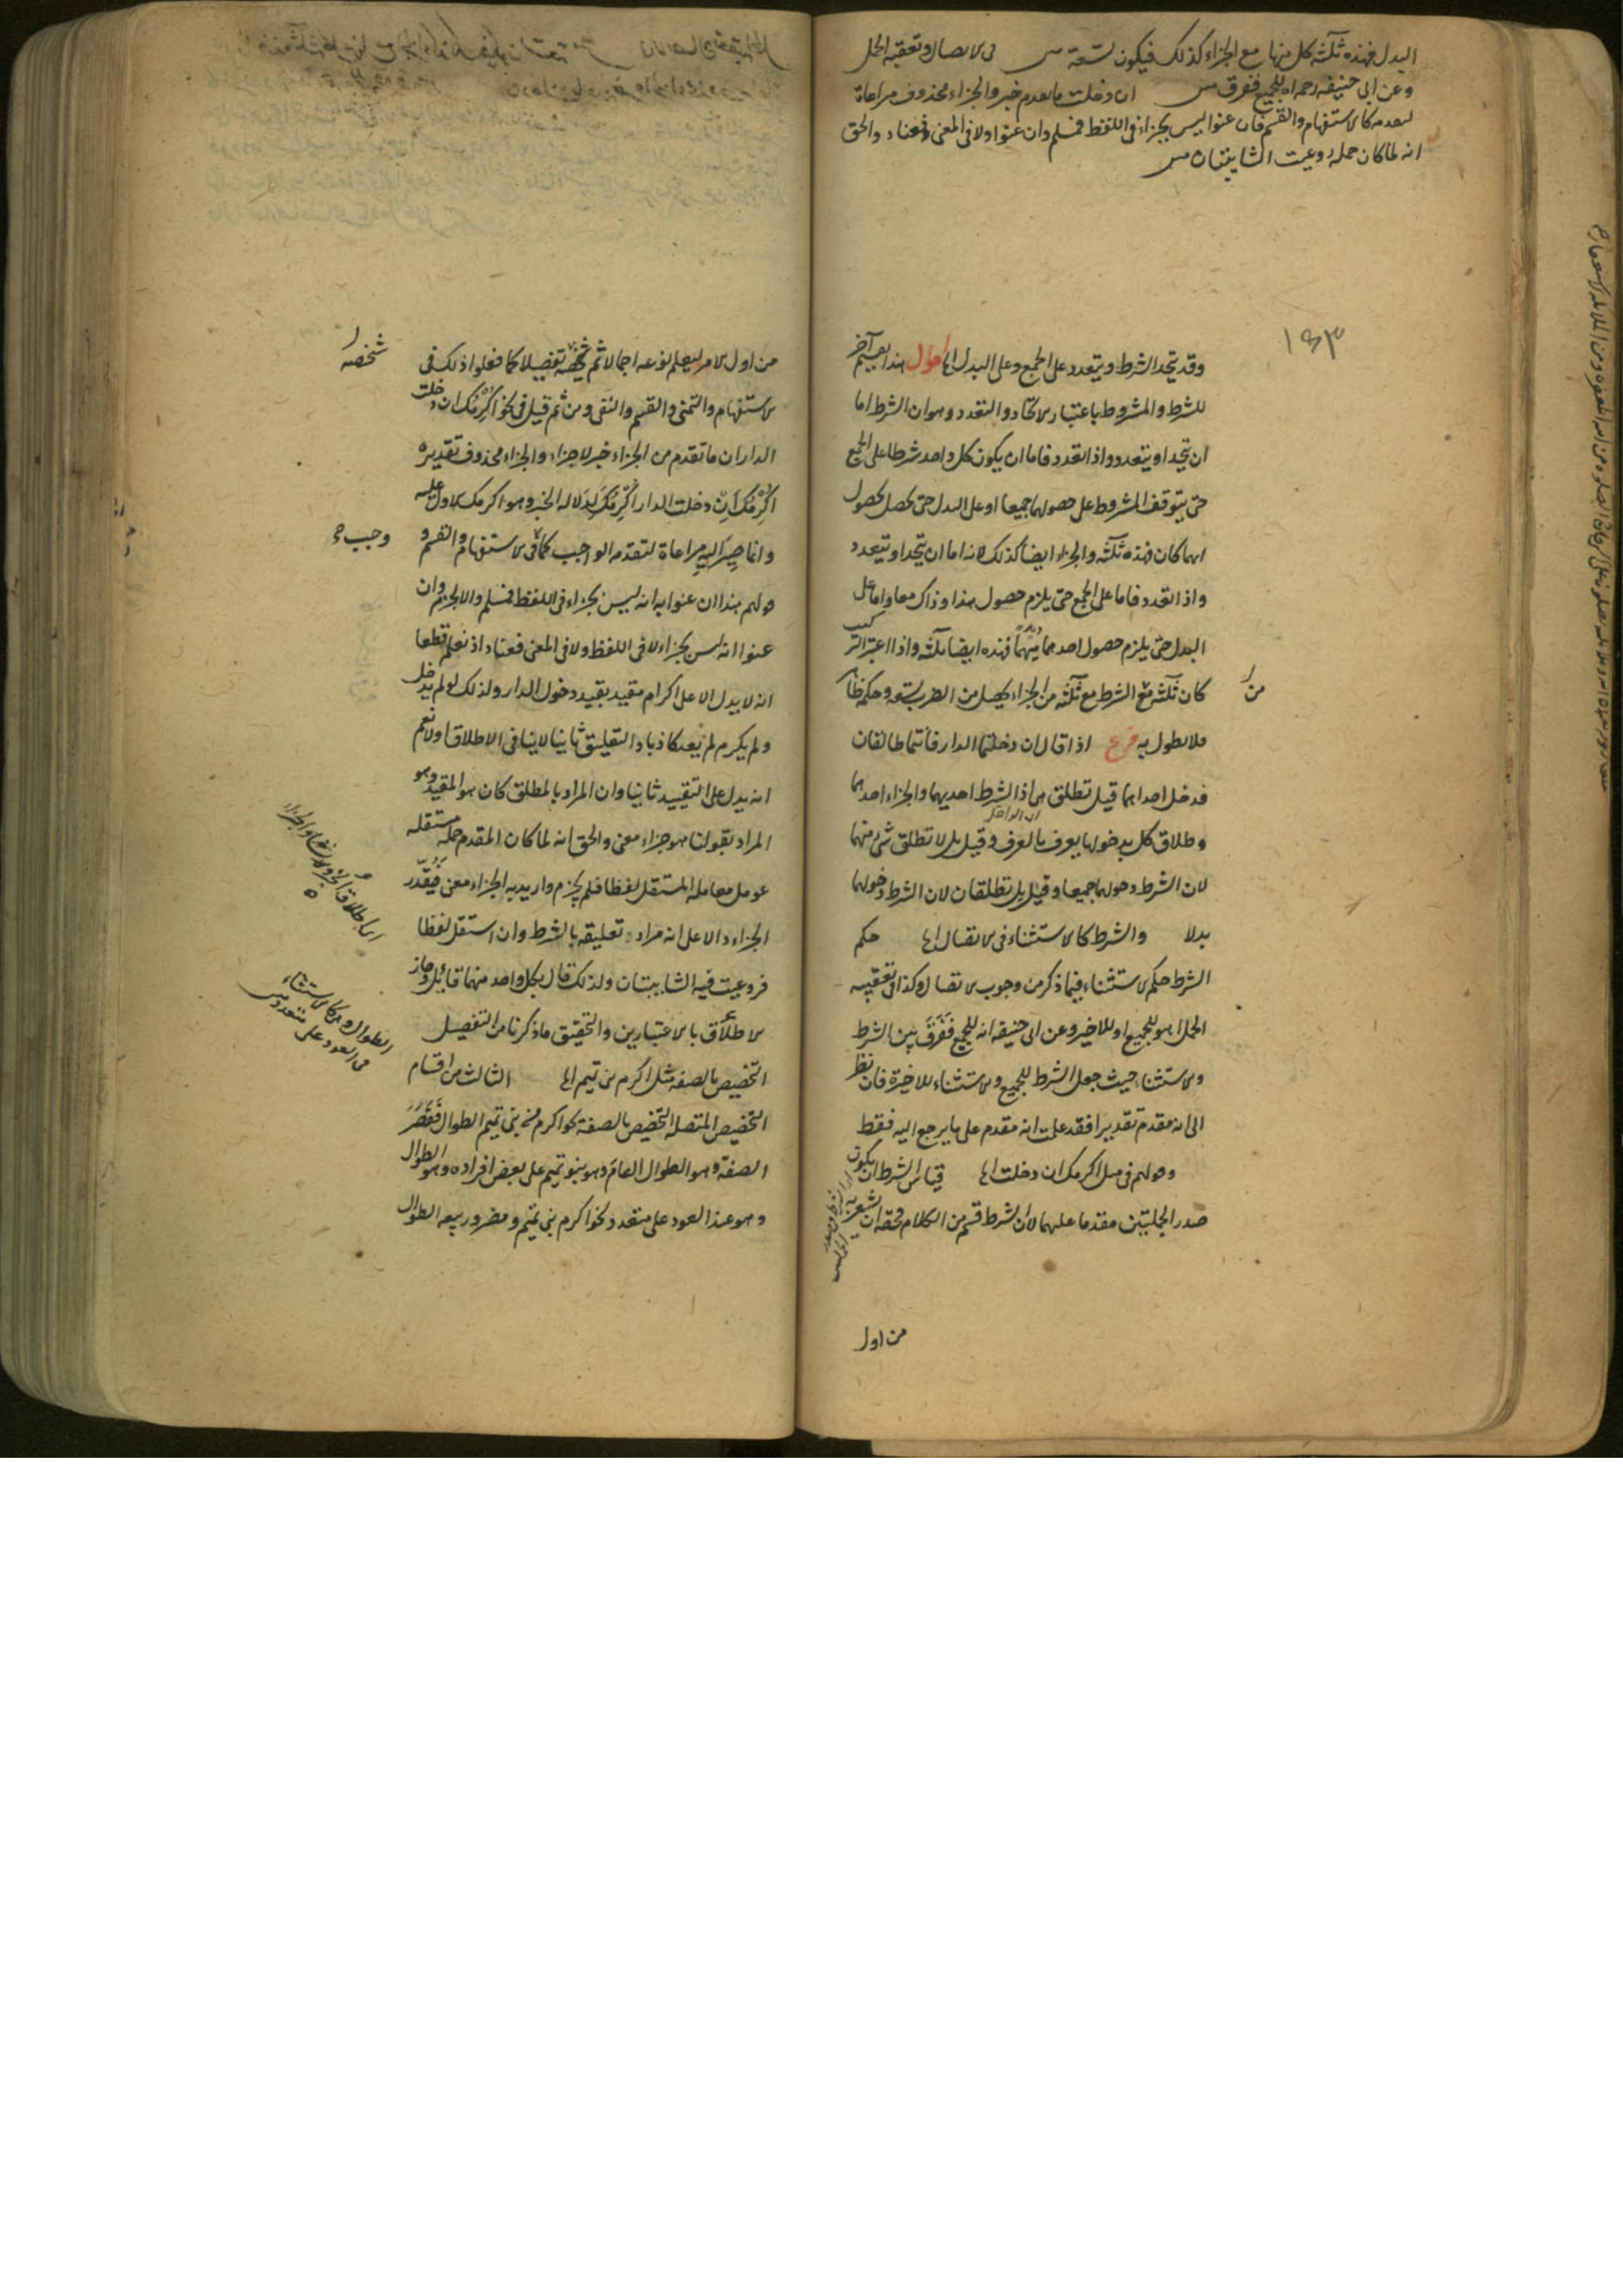 البدل فهذه ثلثة كل منها مع الجزاء كذلك فيكون تسعة في الاتصال وتعقبه الجمل
وعن ابي حنيفة رحمه الله للجميع ففرق ان دخلت ما تقدم خبر والجزاء محذوف مراعاة
لتقدمه كالاستفهام والقسم فان عنوا ليس بجزاء في اللفظ فمسلم وان عنوا ولا في المعنى فعناد والحق
انه لما كان جملة روعيت الشايبتان
١٤٣
وقد يتحد الشرط ويتعدد على الجمع وعلى البدل الخ اقول هذا تقسيم آخر
للشرط والمشروط باعتبار الاتحاد والتعدد وهو ان الشرط اما
ان يتحد او يتعدد واذا تعدد فاما ان يكون كل واحد شرطا على الجمع
حتى يتوقف المشروط على حصولهما جميعا او على البدل حتى يحصل بحصول
ايهما كان فهذه ثلثة والجزاء ايضا كذلك لانه اما ان يتحد او يتعدد
واذا تعدد فاما على الجمع حتى يلزم حصول هذا وذاك معا واما على
البدل حتى يلزم حصول احدهما مبهما فهذه ايضا ثلثة واذا اعتبر التركيب
كان ثلثة من الشرط مع ثلثة من الجزاء يحصل من الضرب تسعة وحكمه ظاهر
فلا نطول به فرع اذا قال ان دخلتما الدار فانتما طالقان
فدخل احداهما قيل تطلق هي اذ الشرط احديهما والجزاء احدهما
وطلاق كل بدخولها يعرف بالعرف وقيل بل لا تطلق شيء منهما
لان الشرط دخولهما جميعا وقيل بل تطلقان لان الشرط دخولهما
بدلا والشرط كالاستثناء في الاتصال الخ حكم
الشرط حكم الاستثناء فيما ذكر من وجوب الاتصال وكذا في تعقيبه
الجمل اهو للجميع او للاخير وعن ابي حنيفة انه للجميع ففرق بين الشرط
والاستثناء حيث جعل الشرط للجميع والاستثناء للاخيرة فان نظر
الى انه مقدم تقديرا فقد علمت انه مقدم على ما يرجع اليه فقط
وقولهم في مثل اكرمك ان دخلت الخ قياس الشرط ان يكون
صدر الجملتين مقدما عليهما لان الشرط قسم من الكلام فحقه ان يشعر به
من اول
من اول الامر ليعلم نوعه اجمالا ثم شخصه تفصيلا كما فعلوا ذلك في
الاستفهام والتمنى والقسم والنفى ومن ثم قيل في نحو اكرمك ان دخلت
الدار ان ما تقدم من الجزاء خبر لا جزاء والجزاء محذوف تقديره
اكرمك ان دخلت الدار اكرمك لدلالة الخبر وهو اكرمك الاول عليه
وانما صير اليه مراعاة لتقدمه الواجب كما في الاستفهام والقسم و
قولهم هذا ان عنوا به انه ليس بجزاء في اللفظ فمسلم والا لجزم وان
عنوا انه ليس بجزاء لا في اللفظ ولا في المعنى فعناد اذ نعلم قطعا
انه لا يدل الا على اكرام مقيد بقيد دخول الدار ولذلك لو لم يدخل
ولم يكرم لم يعد كاذبا والتعليق ثانيا لا ينافى الاطلاق اولا نعم
انه يدل على التقييد ثانيا وان المراد بالمطلق كان هو المقيد وهو
المراد بقولنا هو جزاء معنى والحق انه لما كان المقدم جملة مستقلة
عومل معاملة المستقل لفظا فلم يجزم واريد به الجزاء معنى فيقدر
الجزاء دالا على انه مراد تعليقه بالشرط وان استقل لفظا
فروعيت فيه الشايبتان ولذلك قال بكل واحد منهما قائل وجاز
الاطلاق بالاعتبارين والتحقيق ما ذكرنا من التفصيل
التخصيص بالصفة مثل اكرم بني تميم الخ الثالث من اقسام
التخصيص المتصلة التخصيص بالصفة نحو اكرم بني تميم الطوال فقصر
الصفة وهو الطوال العام وهو بنو تميم على بعض افراده وهو الطوال
وهو عند العود على متعدد نحو اكرم بني تميم ومضر وربيعة الطوال
شخصه
الطوال وهي كالاستثناء
في العود على متعدد